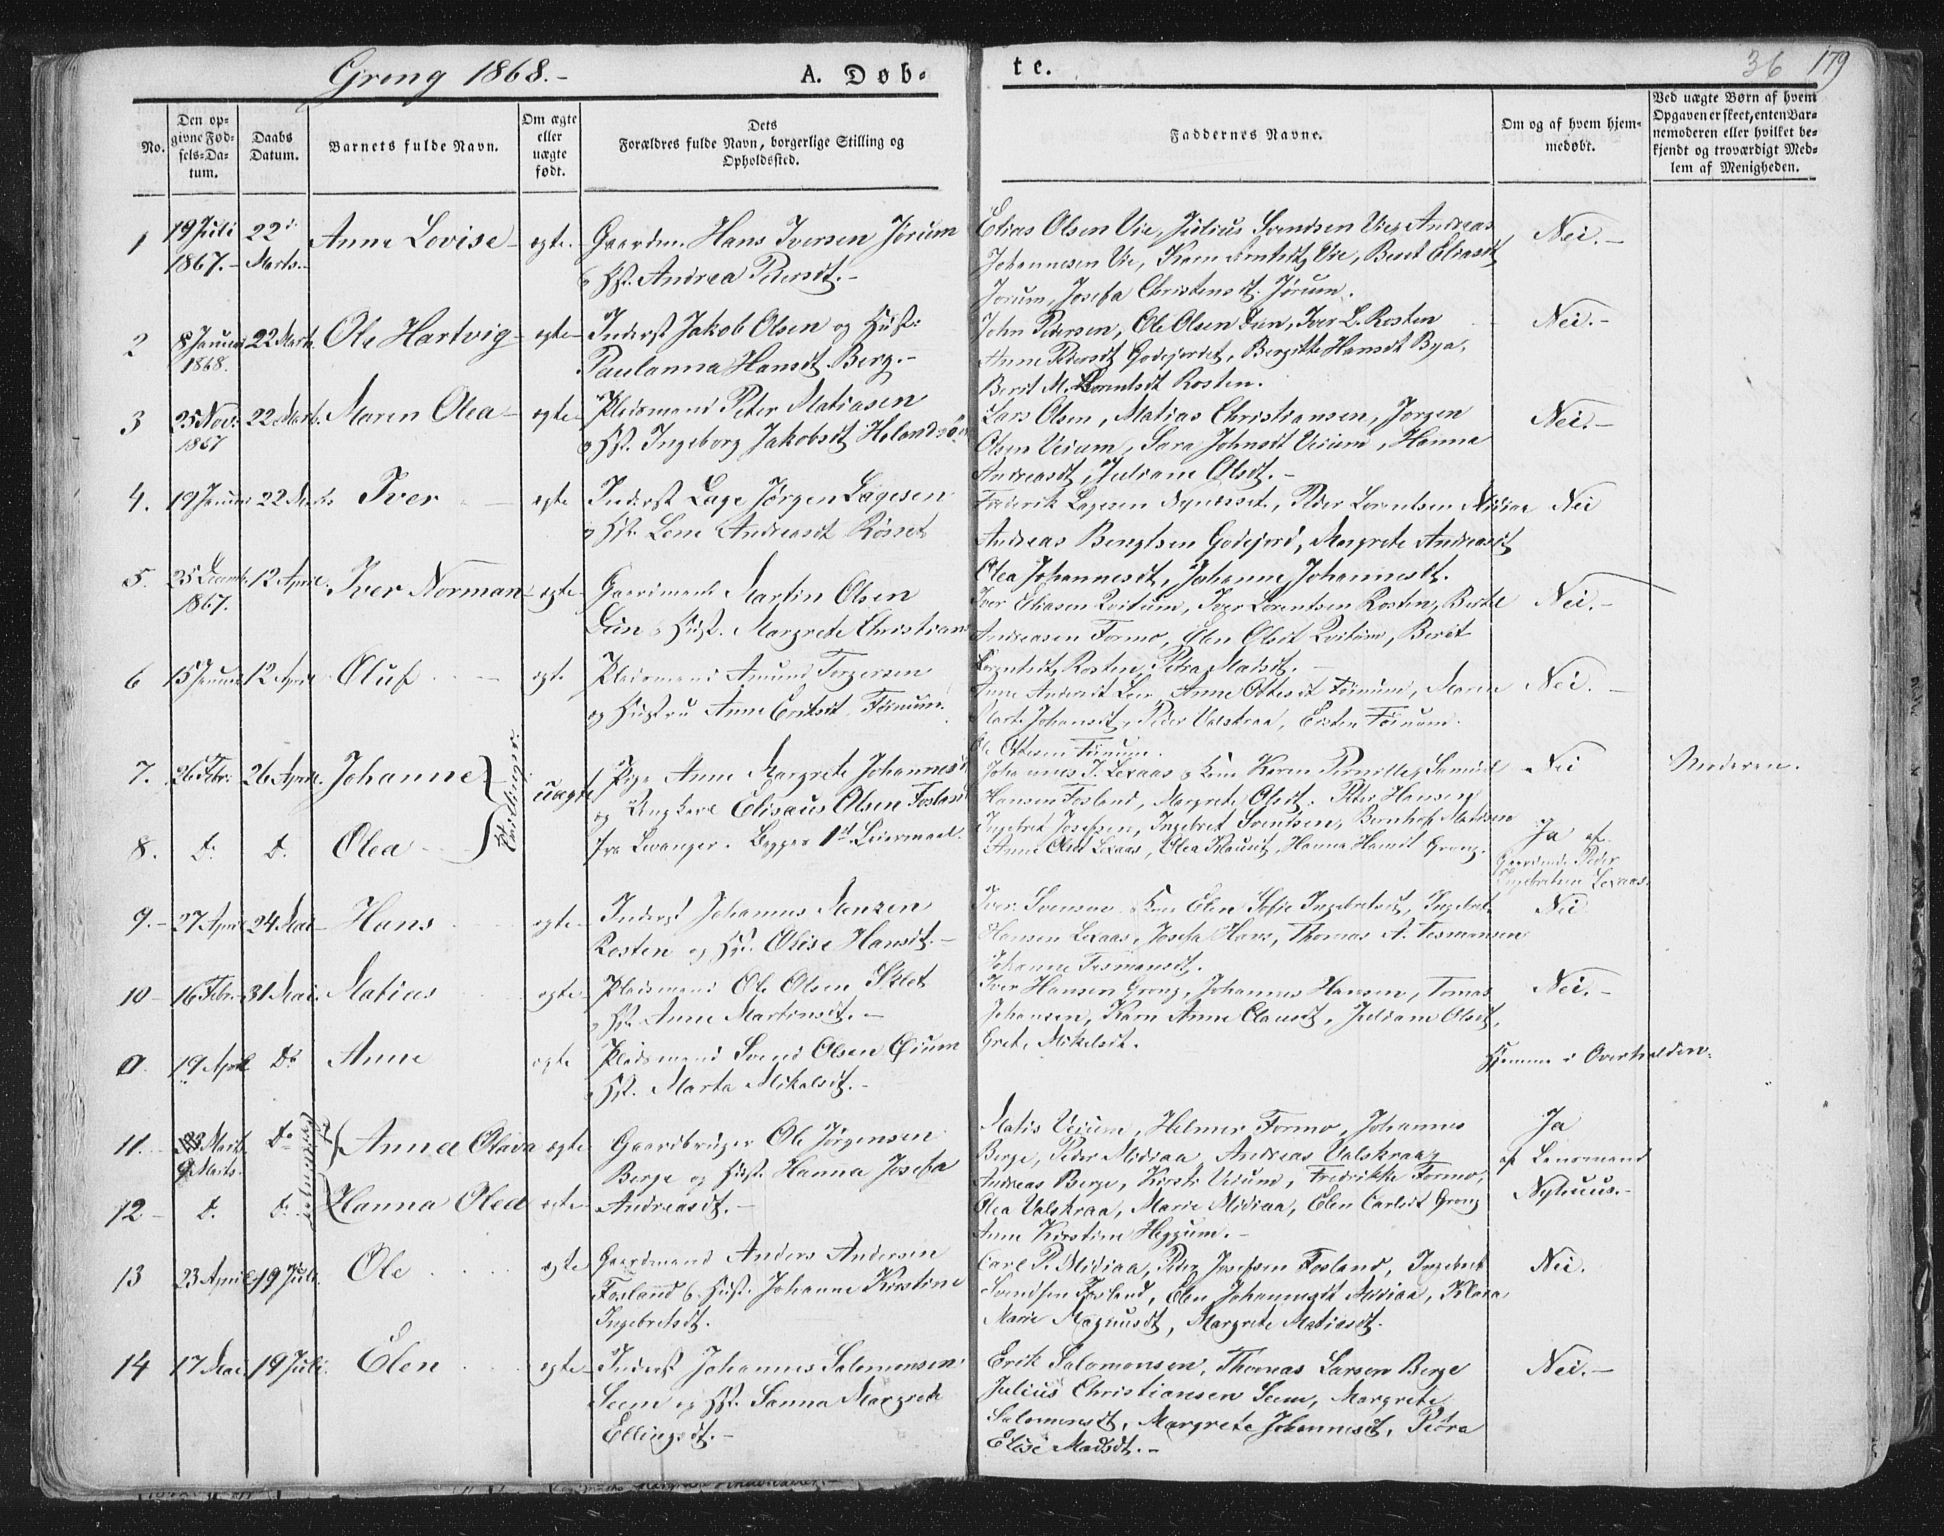 Grong 1868.-
A. Døb-
te.
36 179
No.
Den opgivne Fødsels-Datum.
Daabs Datum.
Barnets fulde Navn.
Om ægte eller uægte født.
Dets Forældres fulde Navn, borgerlige Stilling og Opholdssted.
Faddernes Navne.
Om og af hvem hjemmedøbt.
Ved uægte Børn af hvem Opgaven er skeet, enten Barnemoderen eller hvilket bekjendt og troværdigt Medlem af Menigheden.
1 19 Juli 1867.- 22 Marts.- Anne Lovise ægte. Gaardm. Hans Iversen Jørum
Hst. Andrea Pedersdt.-
Elias Olsen Vie, Julius Svendsen Vie, Andreas
Johannesen Vie, Karen Arntsdt Vie, Beret Eliasdt
Jørum, Josefa Christensdt. Jørum.
Nei.-
2 8 Januar 1868. 22 Marts. Ole Hartvig ægte Inderst Jakob Olsen og Hust:
Paulanna Hansdt Berg.-
John Pedersen, Ole Olsen Dun, Iver L. Rosten
Anne Pedersdt Godejordet, Bergitte Hansdt Bya,
Berit M. Lorentsdt Rosten.
Nei.-
3 25 Nov: 1867 22 Marts. Maren Olea ægte Pladsmand Peter Matiasen
Hst. Ingeborg Jakobsdt
Lars Olsen, Matias Christiansen, Jørgen
Olsen Veium, Sara Johnsdt Veium, Hanna
Andreasdt, Juliane Olsdt.-
Nei.-
4. 19 Januar 22 Marts Iver ægte Inderst Lage Jørgen Lagesen
Hst. Lene Andreasdt Rosset
Frederik Lagesen, Peder Lorentsen Midiaa
Andreas Bengtsen Godejord, Margrete Andreasdt
Olea Johannesdt, Johanne Johannesdt.
Nei
5. 25 Decemb. 1867. 12 April. Iver Norman ægte Gaardmand Martin Olsen
Dun Hust. Margrete Christians
Iver Eliasen Kvitum, Iver Lorentsen Rosten,
Andreasen Formo, Elen Olsdt Kvitum, Berit
Lorentsdt, Rosten, Petra Madsdt.-
Nei.-
6 15 Januar 12 April Oluf ægte Pladsmand Amund Torgersen
og Hustru Anne Eriksdt. Føinum.
Anne Andersdt, Anne Ottesdt Føinum, Maren
Marta Johansdt, Peder Valskraa, Føinum.
Ole Ottesen Føinum.
Nei.-
7. 26 Febr: 26 April. Johanne Tvillinger. uægte Pige Anne Margrete Johannesdt
og Ungkarl Elisæus Olsen Fosland
fra Levanger. Begges 1st Leiermaal.
Johannes I. Lexaas Kone Karen Pernille, Samuel
Hansen Fosland, Margrete Olsdt. Peter Hansen
Nei
Moderen.
8. D. D. Olea
Ingebret Josefsen, Ingebret Svendsen, Bernhof Madsen
Anne Olsdt Lexaas, Olea Klausdt, Hanna Hansdt Grong.
Ja af
Gaardmd. Peder
Ingebretsen Lexaas.
9.- 27 April 24 Mai Hans ægte Inderst Johannes Jensen
Rosten og Hu. Olise Hansdt.-
Iver Svensen Kone Elen Sofie Ingebretsdt, Ingebret
Hansen Lexaas, Josefa Hans, Thomas A. Tosmansen
Johanne Tosmansdt.
Nei
10 16 Febr. 31 Mai. Matias ægte Pladsmand Ole Olsen Sklet
Hst. Anne Martinsdt.-
Iver Hansen Grong, Johannes Hansen, Tomas
Johansen, Karen Anne Clausdt, Juliane Olsdt,
Grete Mikelsdt.
Nei.-
0. 19 April Do Anne ægte Pladsmand Svend Olsen Øium
Hst. Marta Mikalsdt.-
Hjemme i Overhalden.
11. 9 Marts. Do Anna Olava ægte Gaardbruger Ole Jørgensen
Berge og Hust. Hanna Josefa
Matis Veium, Helmer Formo, Johannes
Berge, Peder Midiaa, Andreas Valskraa,
Andreas Berge, Kirsti Veium, Fredrikke Formo,
Ja
af Lensmand
Nyhuus.-
12 D. D. Hanna Olea ægte Andreasdt.-
Olea Valskraa, Marie Midiaa, Elen Carlsdt Grong
Anne Kirstine Heggum.-
Tvillinger
13 23 April 19 Juli. Ole ægte Gaardmand Anders Andersen
Fosland & Hust. Johanne Kirstine
Ingebretsdt.
Carl P. Midiaa, Peder Josefsen Fosland, Ingebret
Svendsen Fosland, Elen Johannesdt Midiaa, Klara
Marie Magnusdt, Margrete Matiasdt.
Nei.
14 17 Mai. 19 Juli. Elen ægte Inderst Johannes Salomonsen
Seem og Hst. Sanna Margrete
Ellingsdt.-
Erik Salomonsen, Thomas Larsen Berge
Julius Christiansen Seem, Margrete
Salomonsdt, Margrete Johannesdt, Petra
Elise Madsdt.-
Nei.-